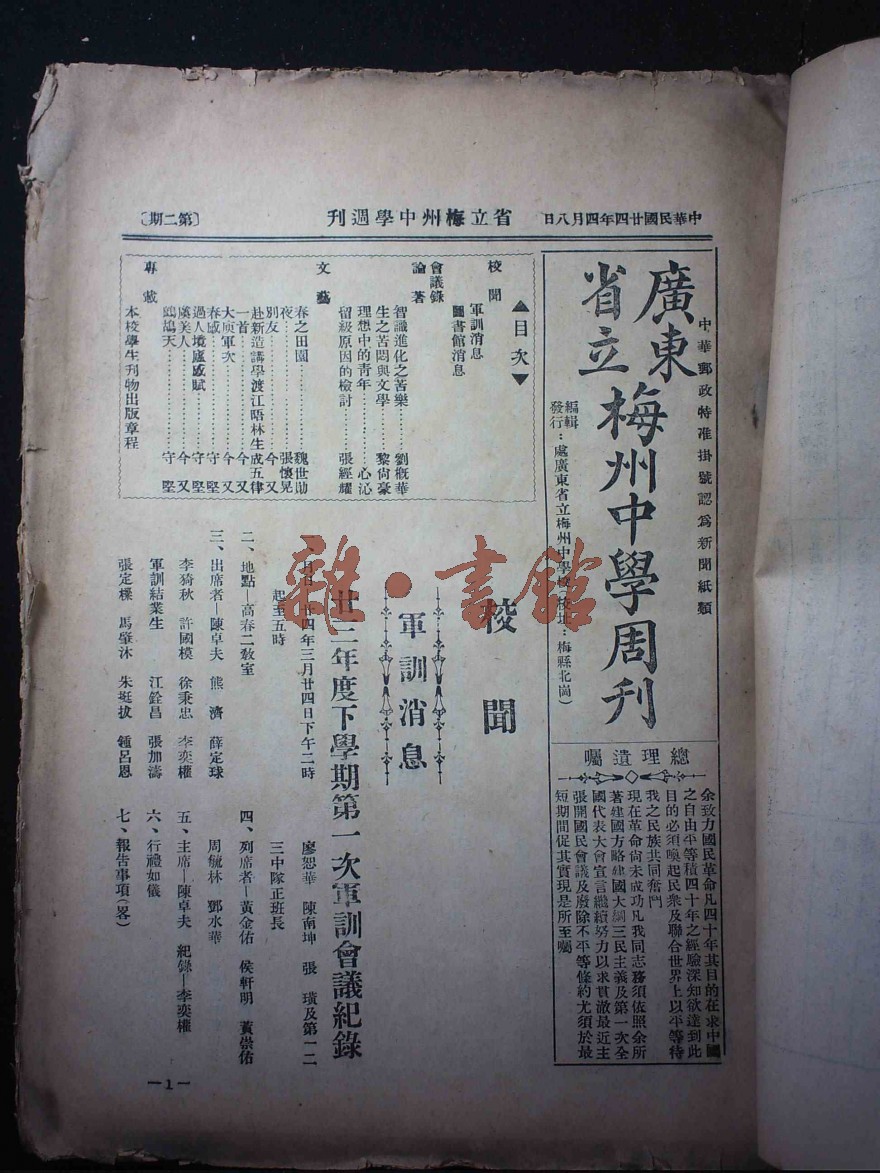 中華民國廿四年四月八日
省立梅州中學週刊
〔第二期〕
中華郵政特准掛號認爲新聞紙類
廣東
省立
梅州中學周刊
編輯
發行：處廣東省立梅州中學校（校址：梅縣北崗）
總理遺囑
余致力國民革命凡四十年其目的在求中國
之自由平等積四十年之經驗深知欲達到此
目的必須喚起民衆及聯合世界上以平等待
我之民族共同奮鬥
現在革命尚未成功凡我同志務須依照余所
著建國方略建國大綱三民主義及第一次全
國代表大會宣言繼續努力以求貫澈最近主
張開國民會議及廢除不平等條約尤須於最
短期間促其實現是所至囑
▲目次▼
校聞
軍訓消息
圖書館消息
會議錄
論著
智識進化之苦樂……劉概華
生之苦悶與文學……黎尙豪
理想中的青年……心沁
留級原因的檢討……張經耀
文藝
春之田園……魏世勛
夜……張懷晃
別友……今又
赴新造講學渡江晤林生成五律
一首……今又
大庾軍次……今又
春感……守堅
過人境廬感賦……守堅
虞美人……今又
鷓鴣天……守堅
專載
本校學生刊物出版章程
校聞
軍訓消息
廿三年度下學期第一次軍訓會議紀錄
一、日月：廿四年三月廿四日下午二時
起至五時
二、地點—高春二教室
三、出席者—陳卓夫 熊濟 薛定球
李猗秋 許國模 徐秉忠 李奕權
軍訓結業生 江銓昌 張加濤
張定樑 馬肇沐 朱挺拔 鍾呂恩
廖恕華 陳南坤 張璜及第一二
三中隊正班長
四、列席者—黃金佑 侯軒明 黃崇佑
周毓林 鄧水華
五、主席—陳卓夫 紀錄—李奕權
六、行禮如儀
七、報告事項（畧）
—1—
雜·書館